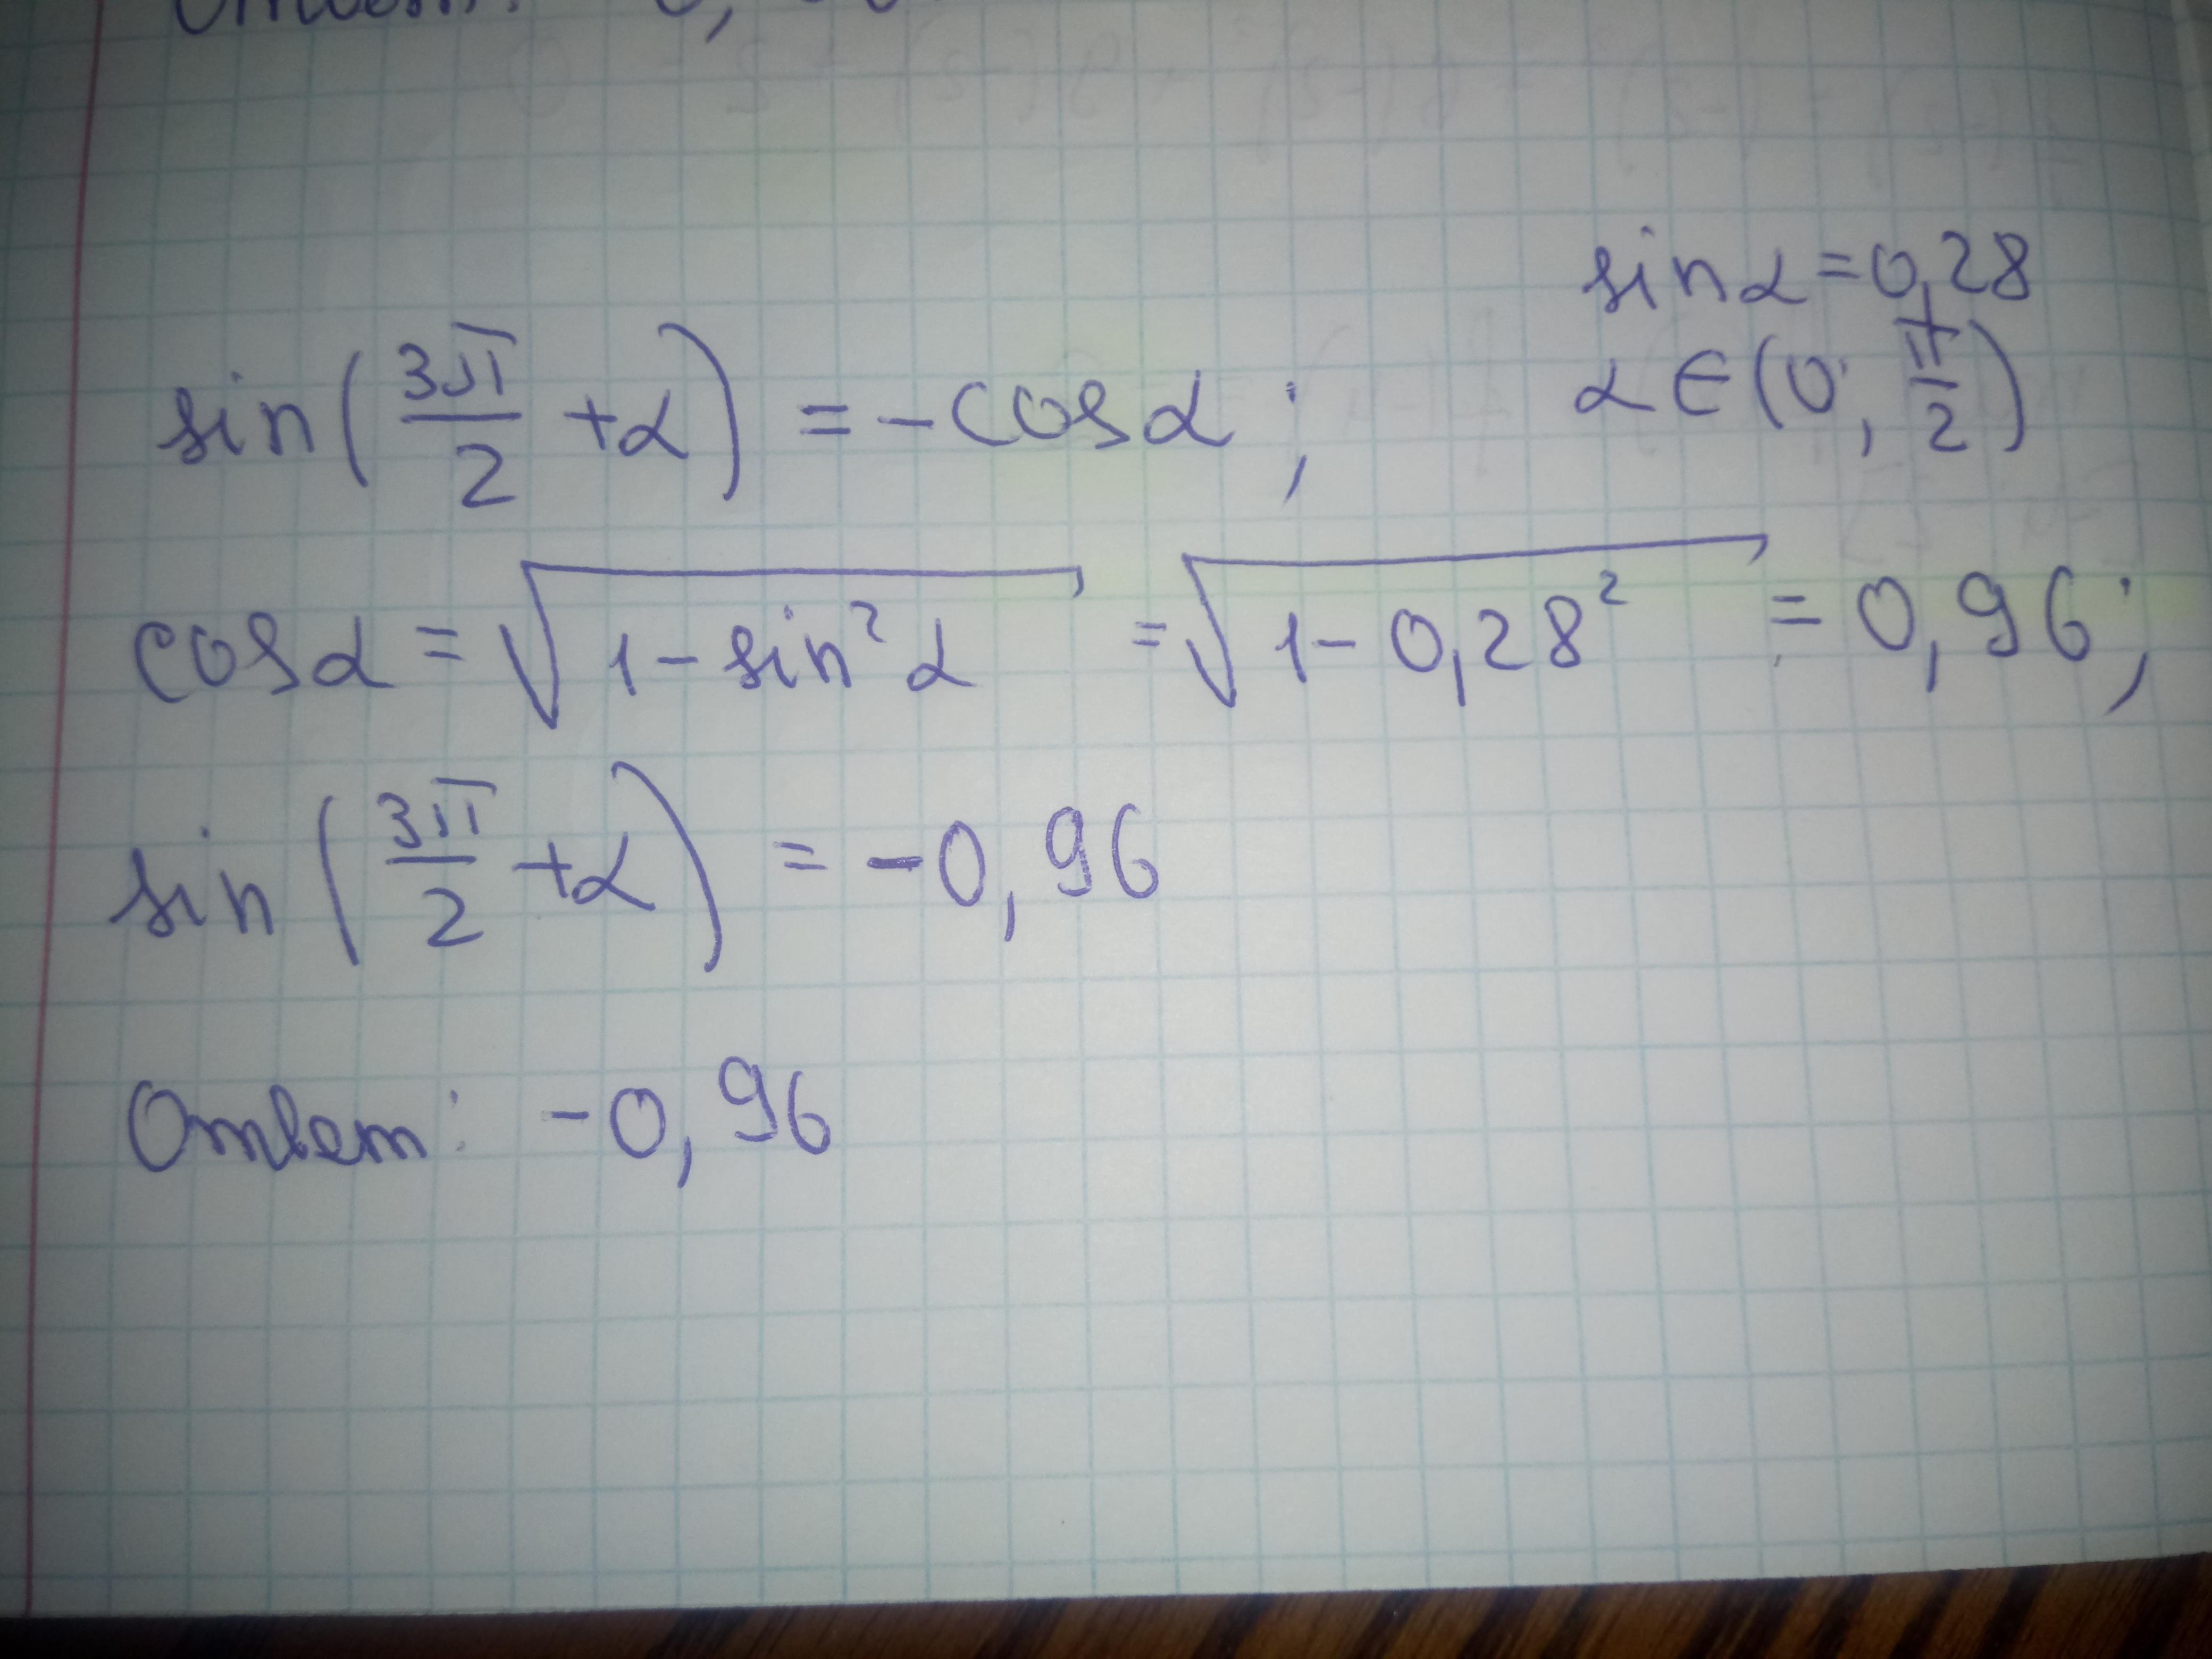 sin α = 0,28
α ∈ (0; π/2)
sin(3π/2 + α) = - cos α;
cos α = √(1 - sin² α) = √(1 - 0,28²) = 0,96;
sin(3π/2 + α) = -0,96
Ответ: -0,96